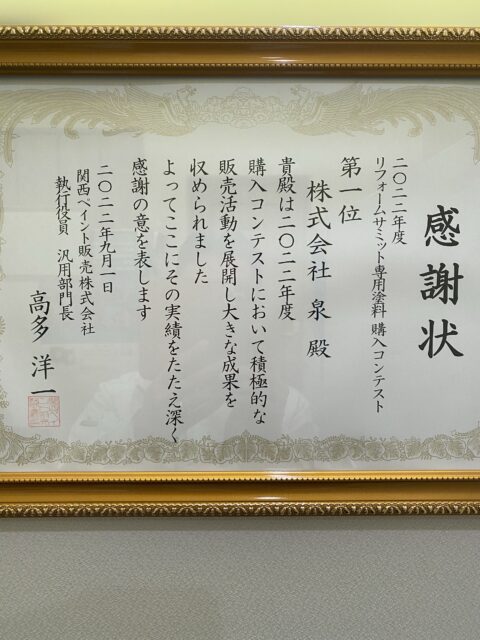 感謝状
二〇二二年度
リフォームサミット専用塗料 購入コンテスト
第一位
株式会社 泉 殿
貴殿は二〇二二年度
購入コンテストにおいて積極的な
販売活動を展開し大きな成果を
収められました
よってここにその実績をたたえ深く
感謝の意を表します
二〇二二年九月一日
関西ペイント販売株式会社
執行役員 汎用部門長
高多 洋一